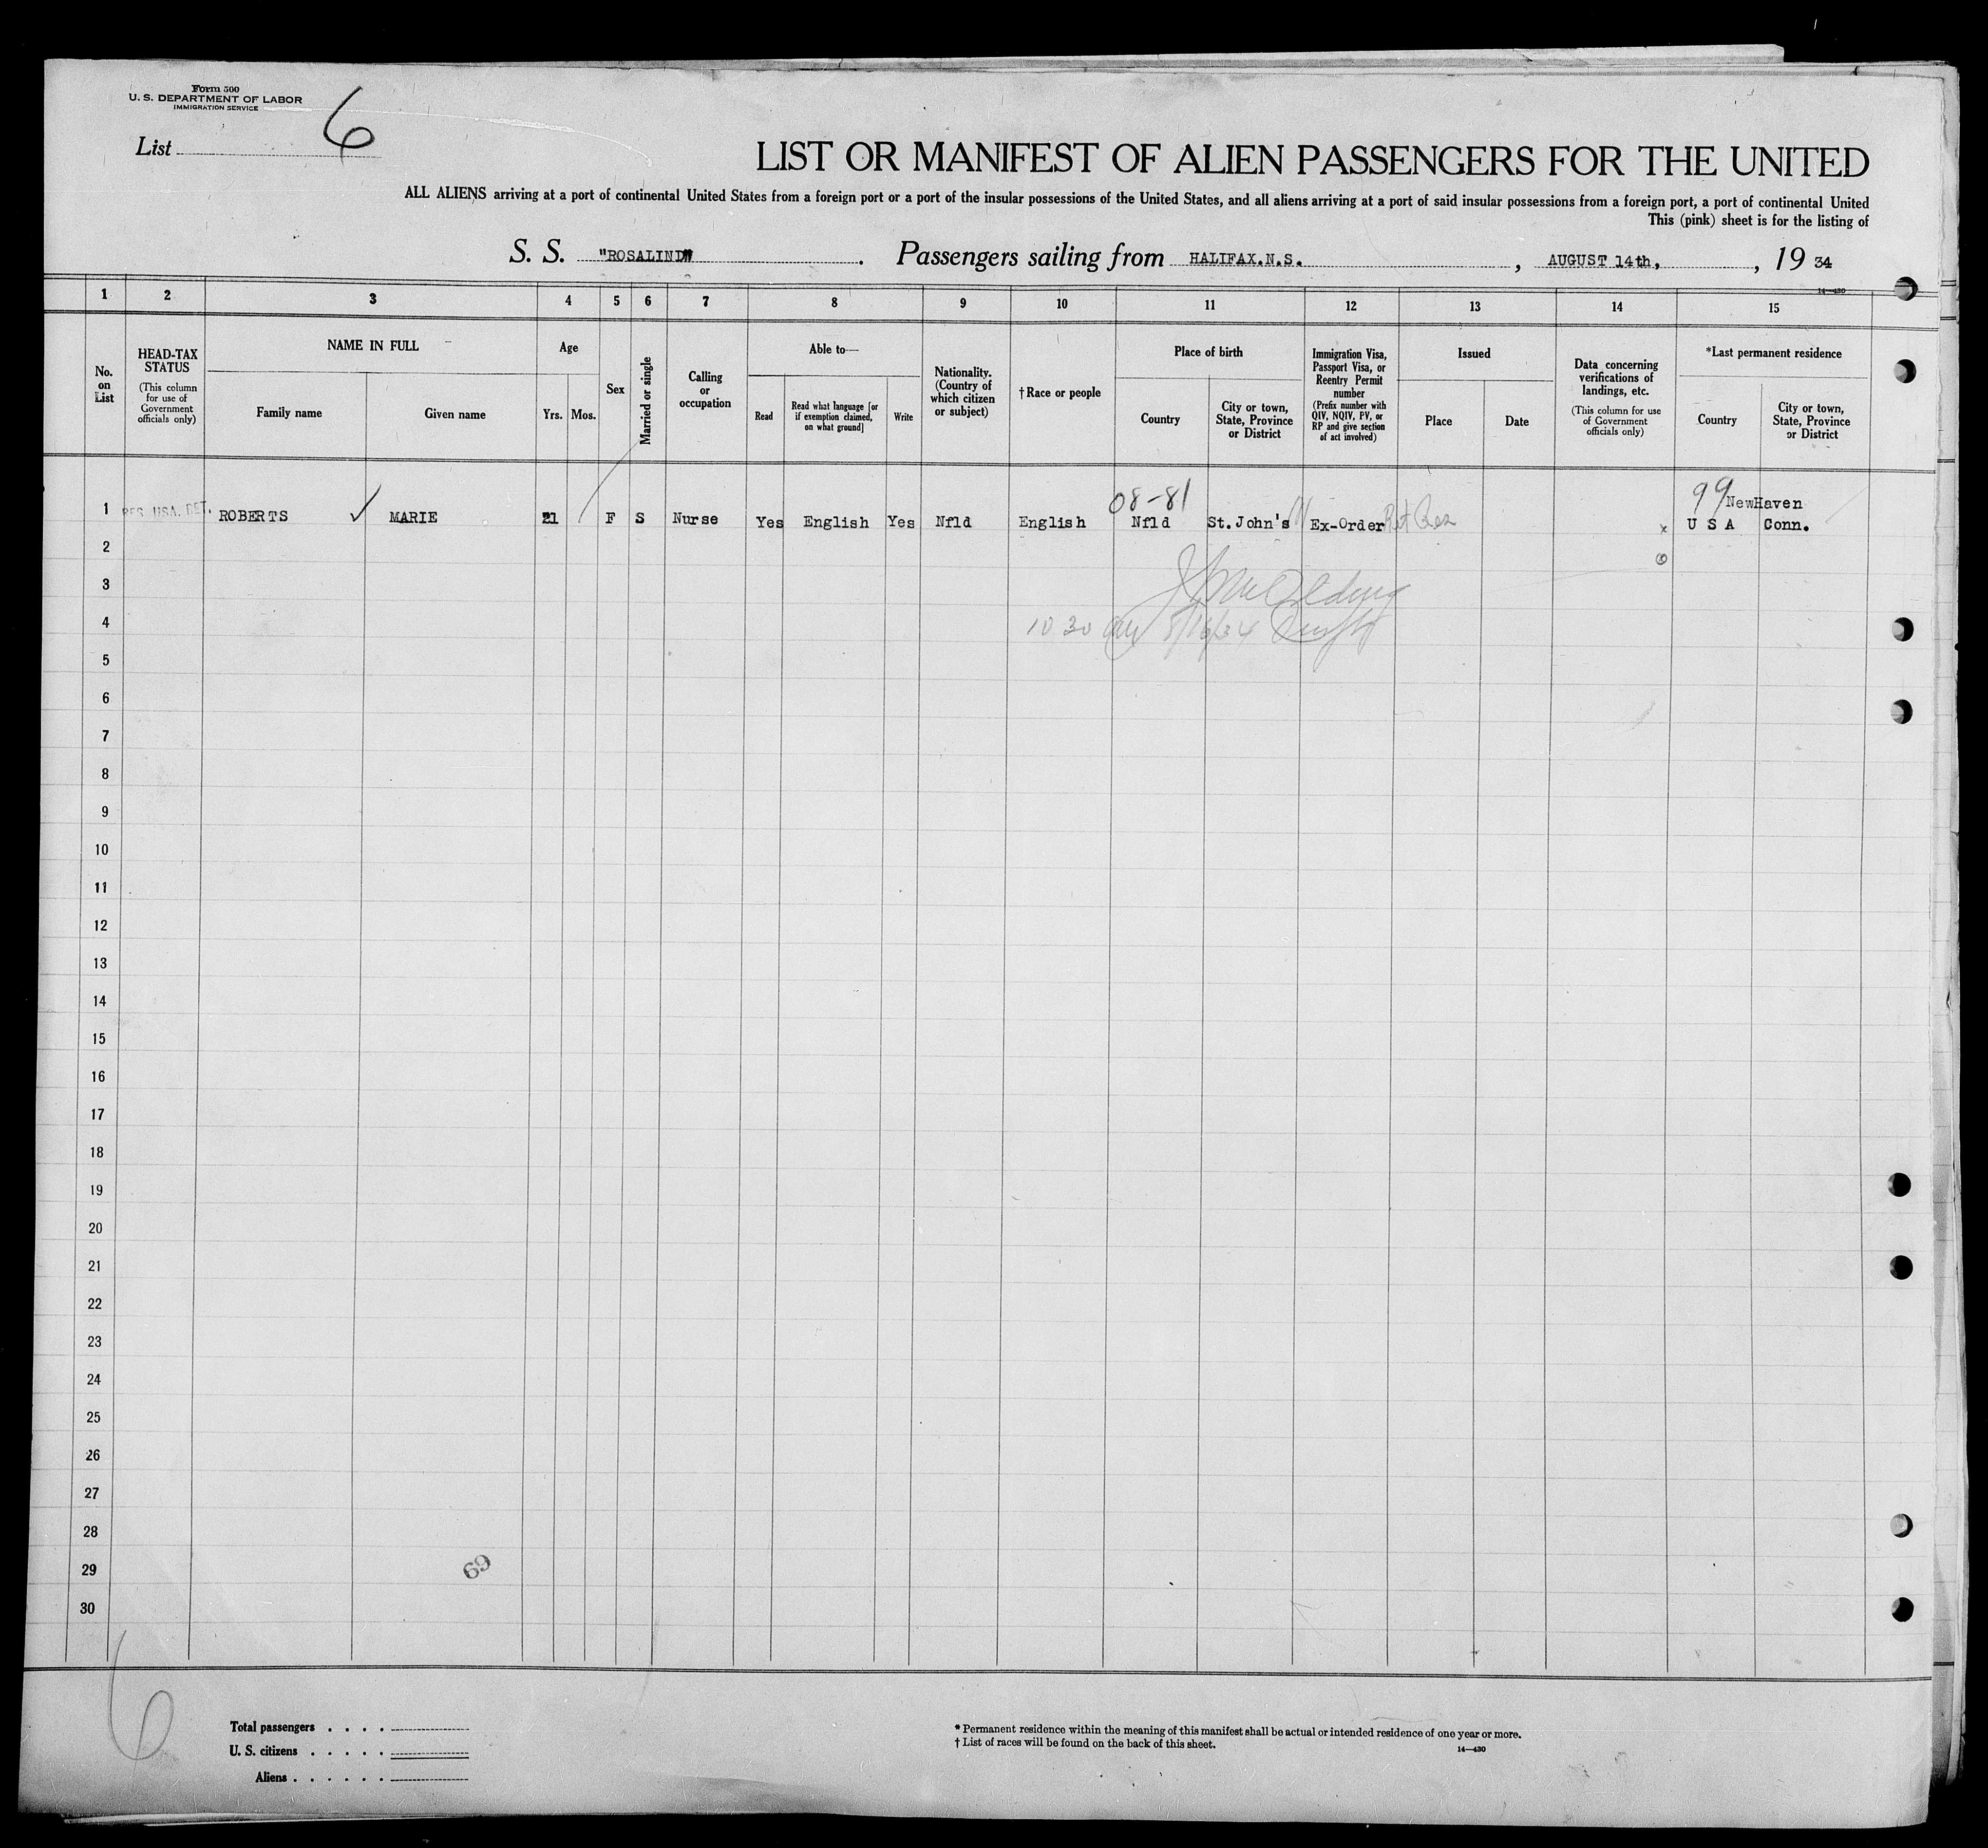 Form 500
U. S. DEPARTMENT OF LABOR
IMMIGRATION SERVICE
List 6
LIST OR MANIFEST OF ALIEN PASSENGERS FOR THE UNITED
ALL ALIENS arriving at a port of continental United States from a foreign port or a port of the insular possessions of the United States, and all aliens arriving at a port of said insular possessions from a foreign port, a port of continental United
This (pink) sheet is for the listing of
S. S. "ROSALIND" . Passengers sailing from HALIFAX.N.S. , AUGUST 14th, , 19 34
14—430
1 2 3 4 5 6 7 8 9 10 11 12 13 14 15
No. on List
HEAD-TAX STATUS (This column for use of Government officials only)
NAME IN FULL
Family name
Given name
Age
Yrs. Mos.
Sex
Married or single
Calling or occupation
Able to—
Read
Read what language [or if exemption claimed, on what ground]
Write
Nationality. (Country of which citizen or subject)
† Race or people
Place of birth
Country
City or town, State, Province or District
Immigration Visa, Passport Visa, or Reentry Permit number (Prefix number with QIV, NQIV, PV, or RP and give section of act involved)
Issued
Place
Date
Data concerning verifications of landings, etc. (This column for use of Government officials only)
*Last permanent residence
Country
City or town, State, Province or District
08-81
99 NewHaven
1 RES. USA. DET. ROBERTS ✓ MARIE 21 F S Nurse Yes English Yes Nfld English Nfld St.John's Ex-Order x U S A Conn.
2
3
4 10 30 am 8/16/34
5
6
7
8
9
10
11
12
13
14
15
16
17
18
19
20
21
22
23
24
25
26
27
28
29
69
30
6
Total passengers . . . .
U. S. citizens . . . . .
Aliens . . . . . .
* Permanent residence within the meaning of this manifest shall be actual or intended residence of one year or more.
† List of races will be found on the back of this sheet.
14—430